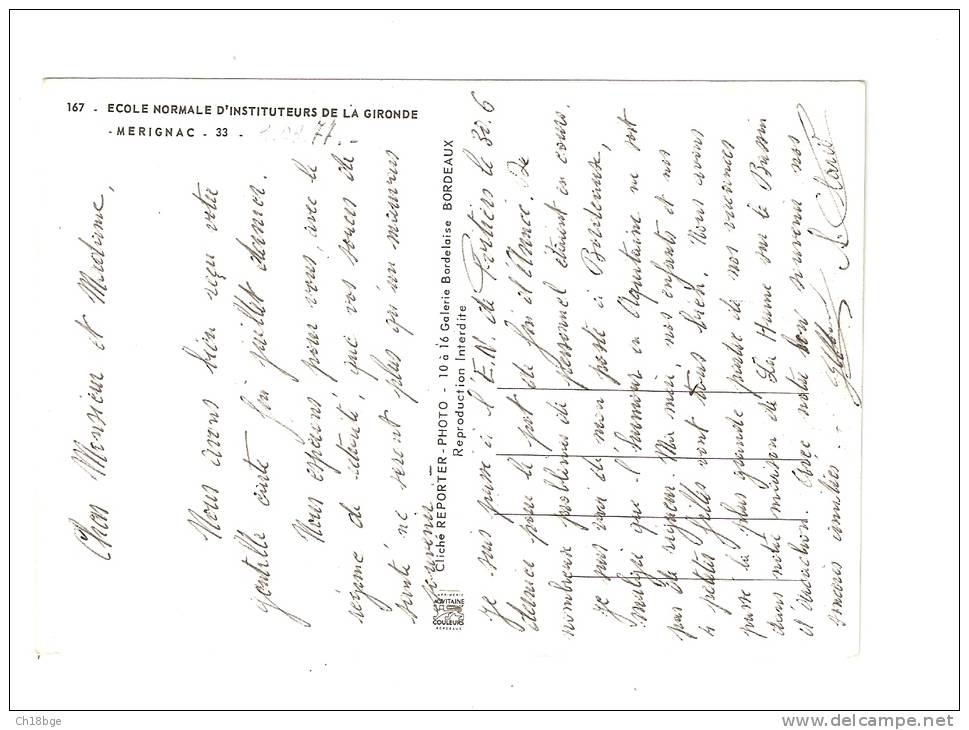 167 - ECOLE NORMALE D'INSTITUTEURS DE LA GIRONDE
- MERIGNAC - 33 -
77
Cher Monsieur et Madame,
Nous avons bien reçu votre
gentille carte fin juillet dernier.
Nous espérons pour vous, avec le
régime de retraité, que vos soucis de
santé ne seront plus qu'un mauvais
souvenir.
Cliché REPORTER-PHOTO - 10 à 16 Galerie Bordelaise BORDEAUX
Reproduction Interdite
IMPRIMERIE
AQVITAINE
COULEURS
BORDEAUX
Je suis passé à l'E.N. de Poitiers le 30.6
dernier pour le pot de fin d'Année. De
nombreux problèmes de personnel étaient en cours.
Je suis ravi de mon poste à Bordeaux,
malgré que l'humour en Aquitaine ne soit
pas de rigueur. Moi même, nos enfants et nos
4 petites filles vont tous bien. Nous avons
passé la plus grande partie de nos vacances
dans notre maison de La Hume sur le Bassin
d'Arcachon. Avec notre bon souvenir nos
amitiés.
Ch18bge
www.delcampe.net